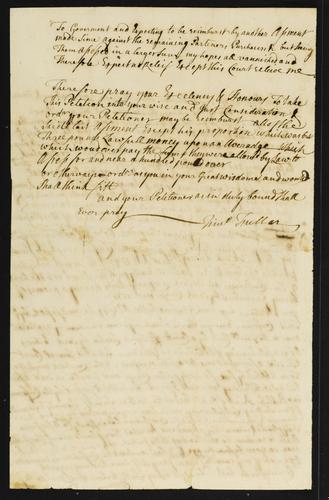 To Goverment and Expecting to be reimburst by another Asment
made Since against the remaining Partenors Purchasers & but Seing
them assessed in a larger Sum, my hopes are vanneshed and
Therefore Expect no Relief Except this Court releive me
Therefore pray your Excelency & Honours To take
This Petition into your wise and Just Consideration &
ordr your Petitioner may be Reimburst all of the
Said last Asment Except his proporsion which was but
Three pounds Lawfull money upon an averadge which
which would over pay the they were allowd by Law to
Asses for and near a hundred pound over
or otherwise ordr as you in your Great wisdome and
Shall think fitt
and your Petitioner as in duty bound Shall
ever pray
Fullar